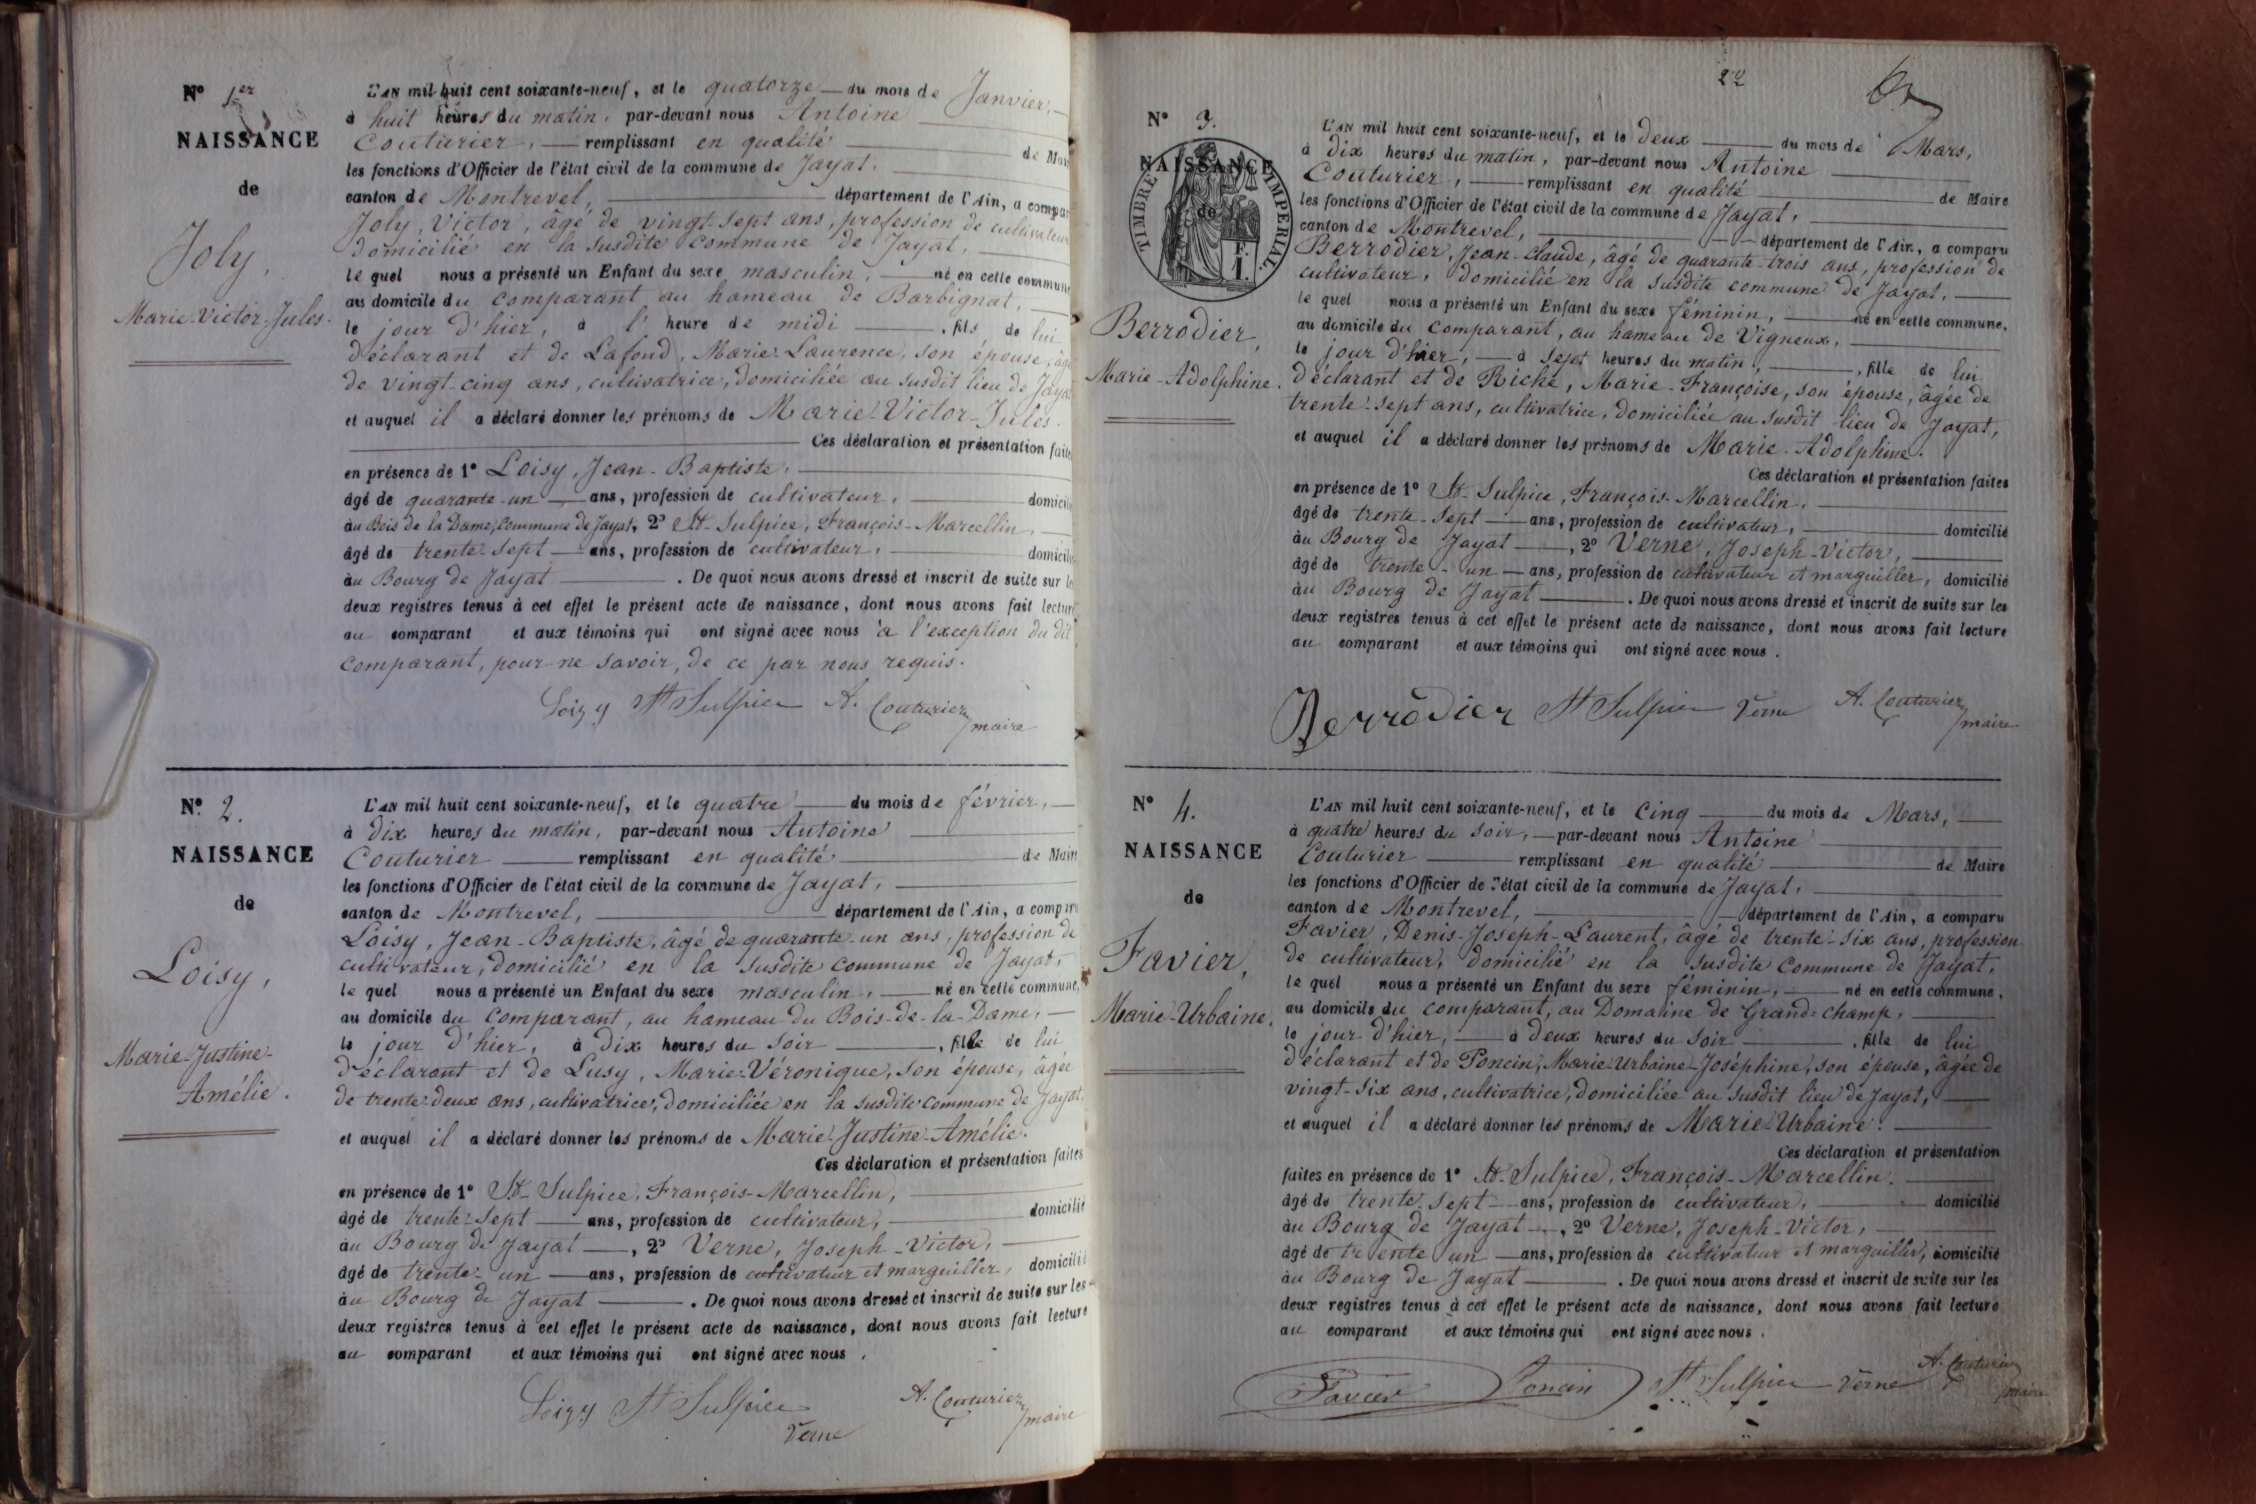 N° 1er
NAISSANCE
de
Joly,
Marie-Victor-Jules.
L'AN mil huit cent soixante-neuf, et le quatorze du mois de Janvier,
à huit heures du matin, par-devant nous Antoine
Couturier, remplissant en qualité de Mai
les fonctions d'Officier de l'état civil de la commune de Jayat,
canton de Montrevel, département de l'Ain, a compar
Joly, Victor, âgé de vingt-sept ans, profession de cultivateur
domicilié en la susdite commune de Jayat,
le quel nous a présenté un Enfant du sexe masculin, né en cette commune
au domicile du comparant au hameau de Barbignat,
le jour d'hier, à l' heure de midi , fils de lui
déclarant et de Lafond, Marie-Laurence, son épouse, âg
de vingt-cinq ans, cultivatrice, domiciliée au susdit lieu de Jayat
et auquel il a déclaré donner les prénoms de Marie-Victor-Jules.
Ces déclaration et présentation faites
en présence de 1° Loisy, Jean-Baptiste,
âgé de quarante-un ans, profession de cultivateur, domicili
au Bois de la Dame, commune de Jayat, 2° St-Sulpice, François-Marcellin,
âgé de trente-sept ans, profession de cultivateur, domicili
au Bourg de Jayat . De quoi nous avons dressé et inscrit de suite sur le
deux registres tenus à cet effet le présent acte de naissance, dont nous avons fait lecture
au comparant et aux témoins qui ont signé avec nous à l'exception du dit
comparant, pour ne savoir, de ce par nous requis.
Loizy St Sulpice A. Couturier
maire
N° 2.
NAISSANCE
de
Loisy,
Marie-Justine-
Amélie.
L'AN mil huit cent soixante-neuf, et le quatre du mois de février,
à dix heures du matin, par-devant nous Antoine
Couturier remplissant en qualité de Maire
les fonctions d'Officier de l'état civil de la commune de Jayat,
canton de Montrevel, département de l'Ain, a comparu
Loisy, Jean-Baptiste, âgé de quarante-un ans, profession de
cultivateur, domicilié en la susdite commune de Jayat,
le quel nous a présenté un Enfant du sexe masculin, né en cette commune,
au domicile du comparant, au hameau du Bois-de-la-Dame,
le jour d'hier, à dix heures du soir , fille de lui
déclarant et de Lusy, Marie-Véronique, son épouse, âgée
de trente-deux ans, cultivatrice, domiciliée en la susdite commune de Jayat,
et auquel il a déclaré donner les prénoms de Marie-Justine-Amélie.
Ces déclaration et présentation faites
en présence de 1° St-Sulpice, François-Marcellin,
âgé de trente-sept ans, profession de cultivateur, domicilié
au Bourg de Jayat , 2° Verne, Joseph-Victor,
âgé de trente-un ans, profession de cultivateur et marguiller, domicilié
au Bourg de Jayat . De quoi nous avons dressé et inscrit de suite sur les
deux registres tenus à cet effet le présent acte de naissance, dont nous avons fait lecture
au comparant et aux témoins qui ont signé avec nous .
Loizy St Sulpice A. Couturier
Verne maire
22
N° 3.
NAISSANCE
de
TIMBRE IMPERIAL
F.
1.
Berrodier,
Marie-Adolphine.
L'AN mil huit cent soixante-neuf, et le deux du mois de Mars,
à dix heures du matin, par-devant nous Antoine
Couturier, remplissant en qualité de Maire
les fonctions d'Officier de l'état civil de la commune de Jayat,
canton de Montrevel, département de l'Ain, a comparu
Berrodier, Jean-claude, âgé de quarante-trois ans, profession de
cultivateur, domicilié en la susdite commune de Jayat,
le quel nous a présenté un Enfant du sexe féminin, né en cette commune,
au domicile du comparant, au hameau de Vigneux,
le jour d'hier, à sept heures du matin, , fille de lui
déclarant et de Riche, Marie-Françoise, son épouse, âgée de
trente-sept ans, cultivatrice, domiciliée au susdit lieu de Jayat,
et auquel il a déclaré donner les prénoms de Marie-Adolphine.
Ces déclaration et présentation faites
en présence de 1° St-Sulpice, François-Marcellin,
âgé de trente-sept ans, profession de cultivateur, domicilié
au Bourg de Jayat , 2° Verne, Joseph-Victor,
âgé de trente-un ans, profession de cultivateur et marguiller, domicilié
au Bourg de Jayat . De quoi nous avons dressé et inscrit de suite sur les
deux registres tenus à cet effet le présent acte de naissance, dont nous avons fait lecture
au comparant et aux témoins qui ont signé avec nous .
Berrodier St Sulpice Verne A. Couturier
maire
N° 4.
NAISSANCE
de
Favier,
Marie-Urbaine.
L'AN mil huit cent soixante-neuf, et le cinq du mois de Mars,
à quatre heures du soir, par-devant nous Antoine
Couturier remplissant en qualité de Maire
les fonctions d'Officier de l'état civil de la commune de Jayat,
canton de Montrevel, département de l'Ain, a comparu
Favier, Denis-Joseph-Laurent, âgé de trente-six ans, profession
de cultivateur, domicilié en la susdite commune de Jayat,
le quel nous a présenté un Enfant du sexe féminin, né en cette commune,
au domicile du comparant, au Domaine de Grand-champ,
le jour d'hier, à deux heures du soir , fille de lui
déclarant et de Poncin, Marie-Urbaine-Joséphine, son épouse, âgée de
vingt-six ans, cultivatrice, domiciliée au susdit lieu de Jayat,
et auquel il a déclaré donner les prénoms de Marie-Urbaine.
Ces déclaration et présentation
faites en présence de 1° St-Sulpice, François-Marcellin,
âgé de trente-sept ans, profession de cultivateur, domicilié
au Bourg de Jayat , 2° Verne, Joseph-Victor,
âgé de trente un ans, profession de cultivateur et marguiller, domicilié
au Bourg de Jayat . De quoi nous avons dressé et inscrit de suite sur les
deux registres tenus à cet effet le présent acte de naissance, dont nous avons fait lecture
au comparant et aux témoins qui ont signé avec nous .
Favier Poncin St Sulpice Verne A. Couturier
maire